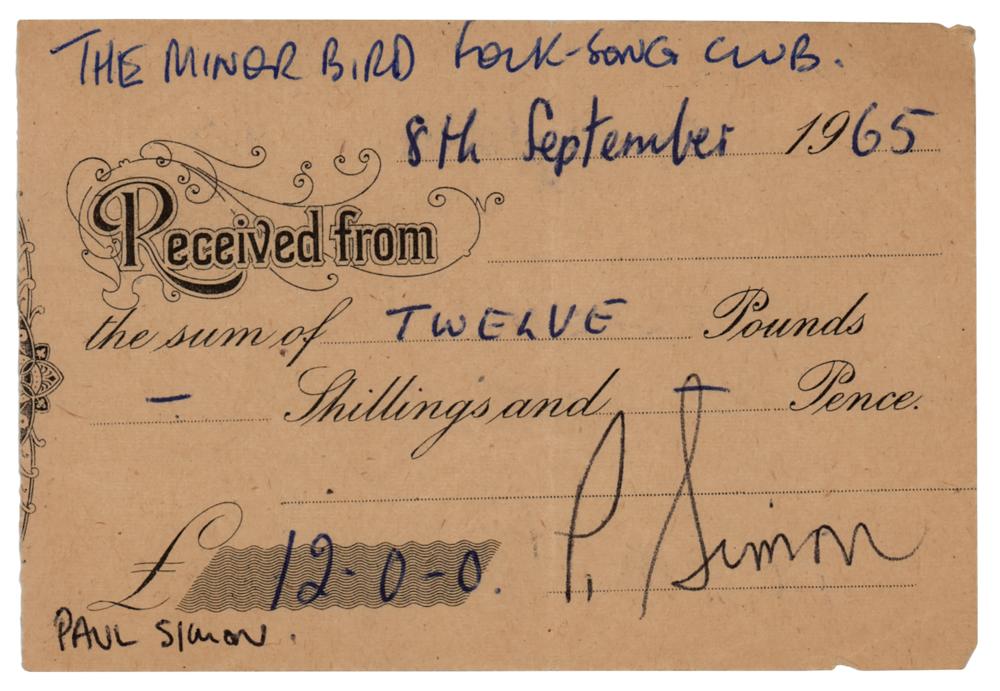 THE MINOR BIRD FOLK-SONG CLUB.
8th September 1965
Received from
the sum of TWELVE Pounds
– Shillings and – Pence.
£ 12-0-0. P. Simon
PAUL SIMON.